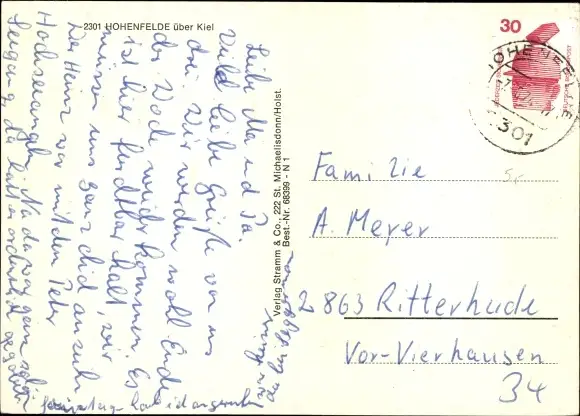 2301 HOHENFELDE über Kiel
Liebe Ma und Pa.
Viele liebe Grüße von uns
drei. Wir werden wohl Ende
der Woche wieder kommen. Es
ist hier furchtbar kalt, wir
müssen uns ganz dick anziehen
Der Heinz war mit dem Peter
Hochseeangeln. Na da war ganz schön
Seegang, da hat er ordentlich
Verlag Stramm & Co., 222 St. Michaelisdonn/Holst.
Best.-Nr. 68399 - N 1
30
301
Familie
A. Meyer
2863 Ritterhude
Vor-Vierhausen
34